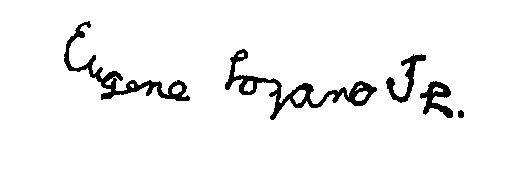 Eugene Lozano JR.